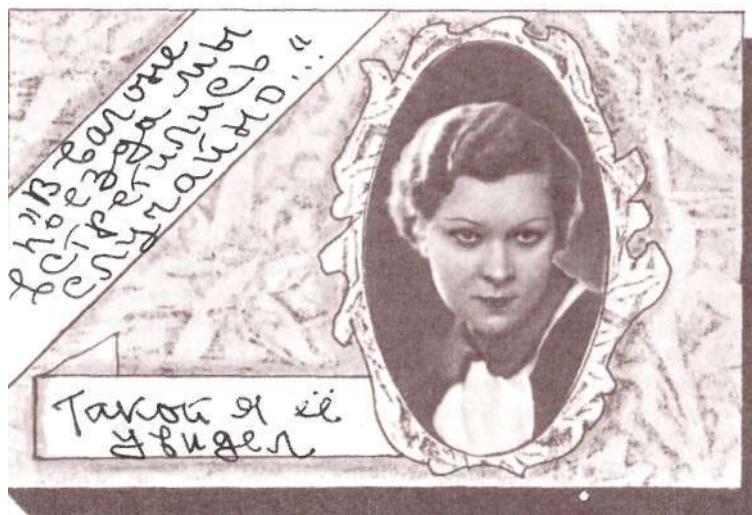 „В вагоне
поезда мы
встретились
случайно..."
Такой я её
увидел